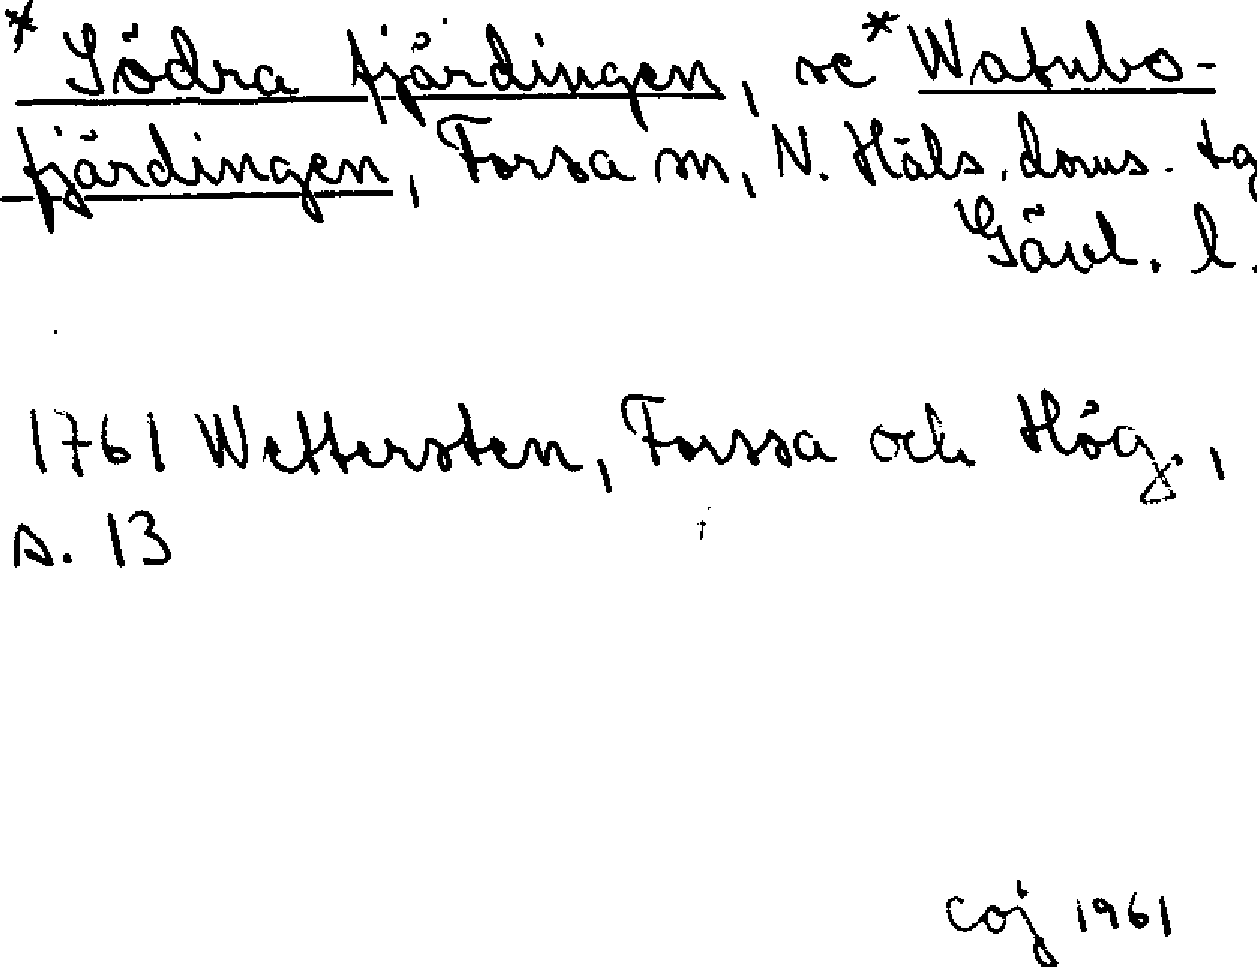 * Södra fjärdingen, se * Watubo-
fjärdingen, Forsa sn, N. Häls. doms. tg
Gävl. l.
1761 Wettersten, Forssa och Hög,
s. 13
coj 1961